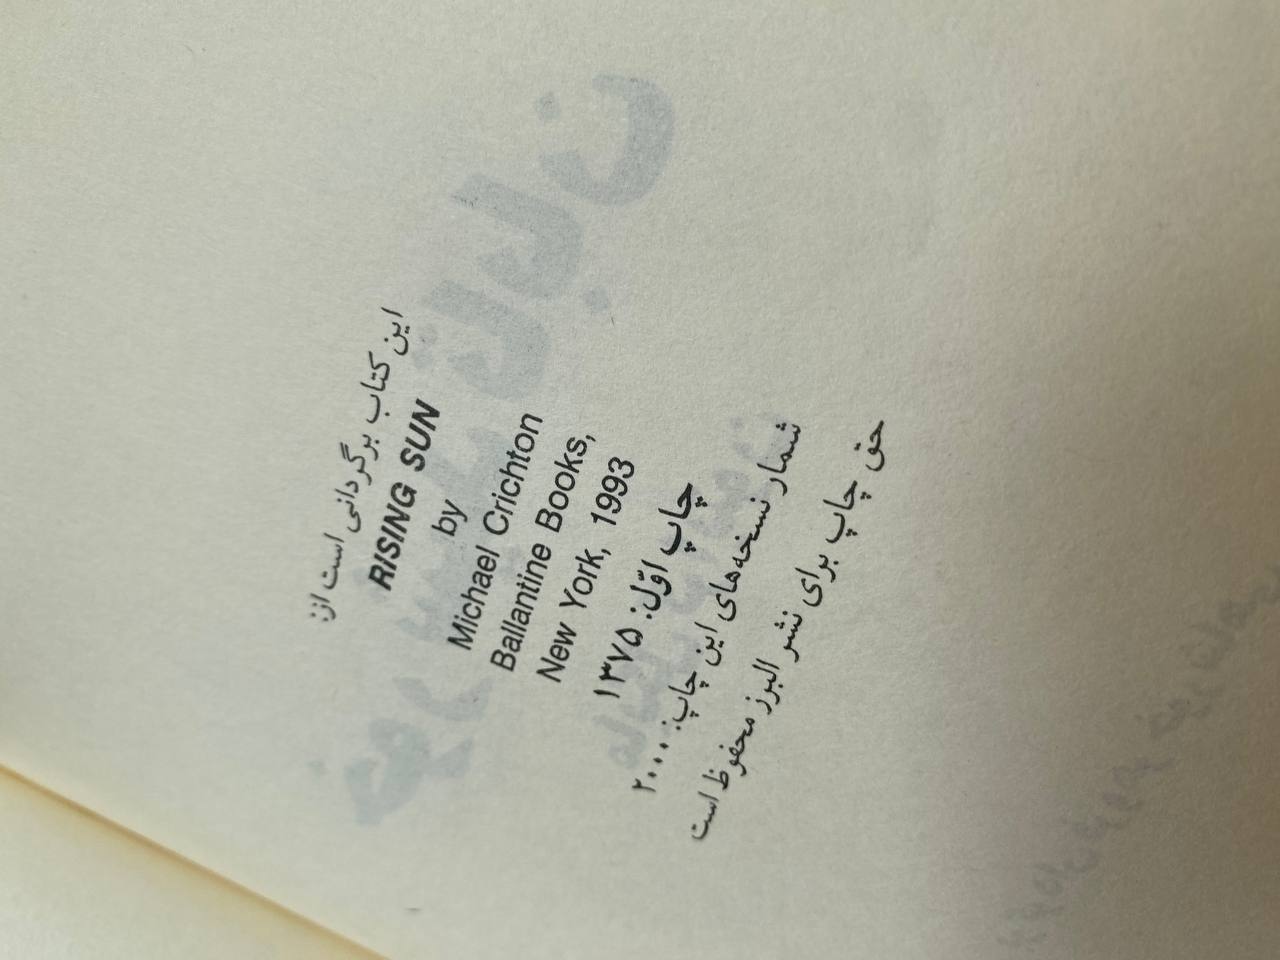 این کتاب برگردانی است از:
RISING SUN
by
Michael Crichton
Ballantine Books,
New York, 1993
چاپ اوّل: ۱۳۷۵
شمار نسخه‌های این چاپ: ۲۰۰۰
حق چاپ برای نشر البرز محفوظ است